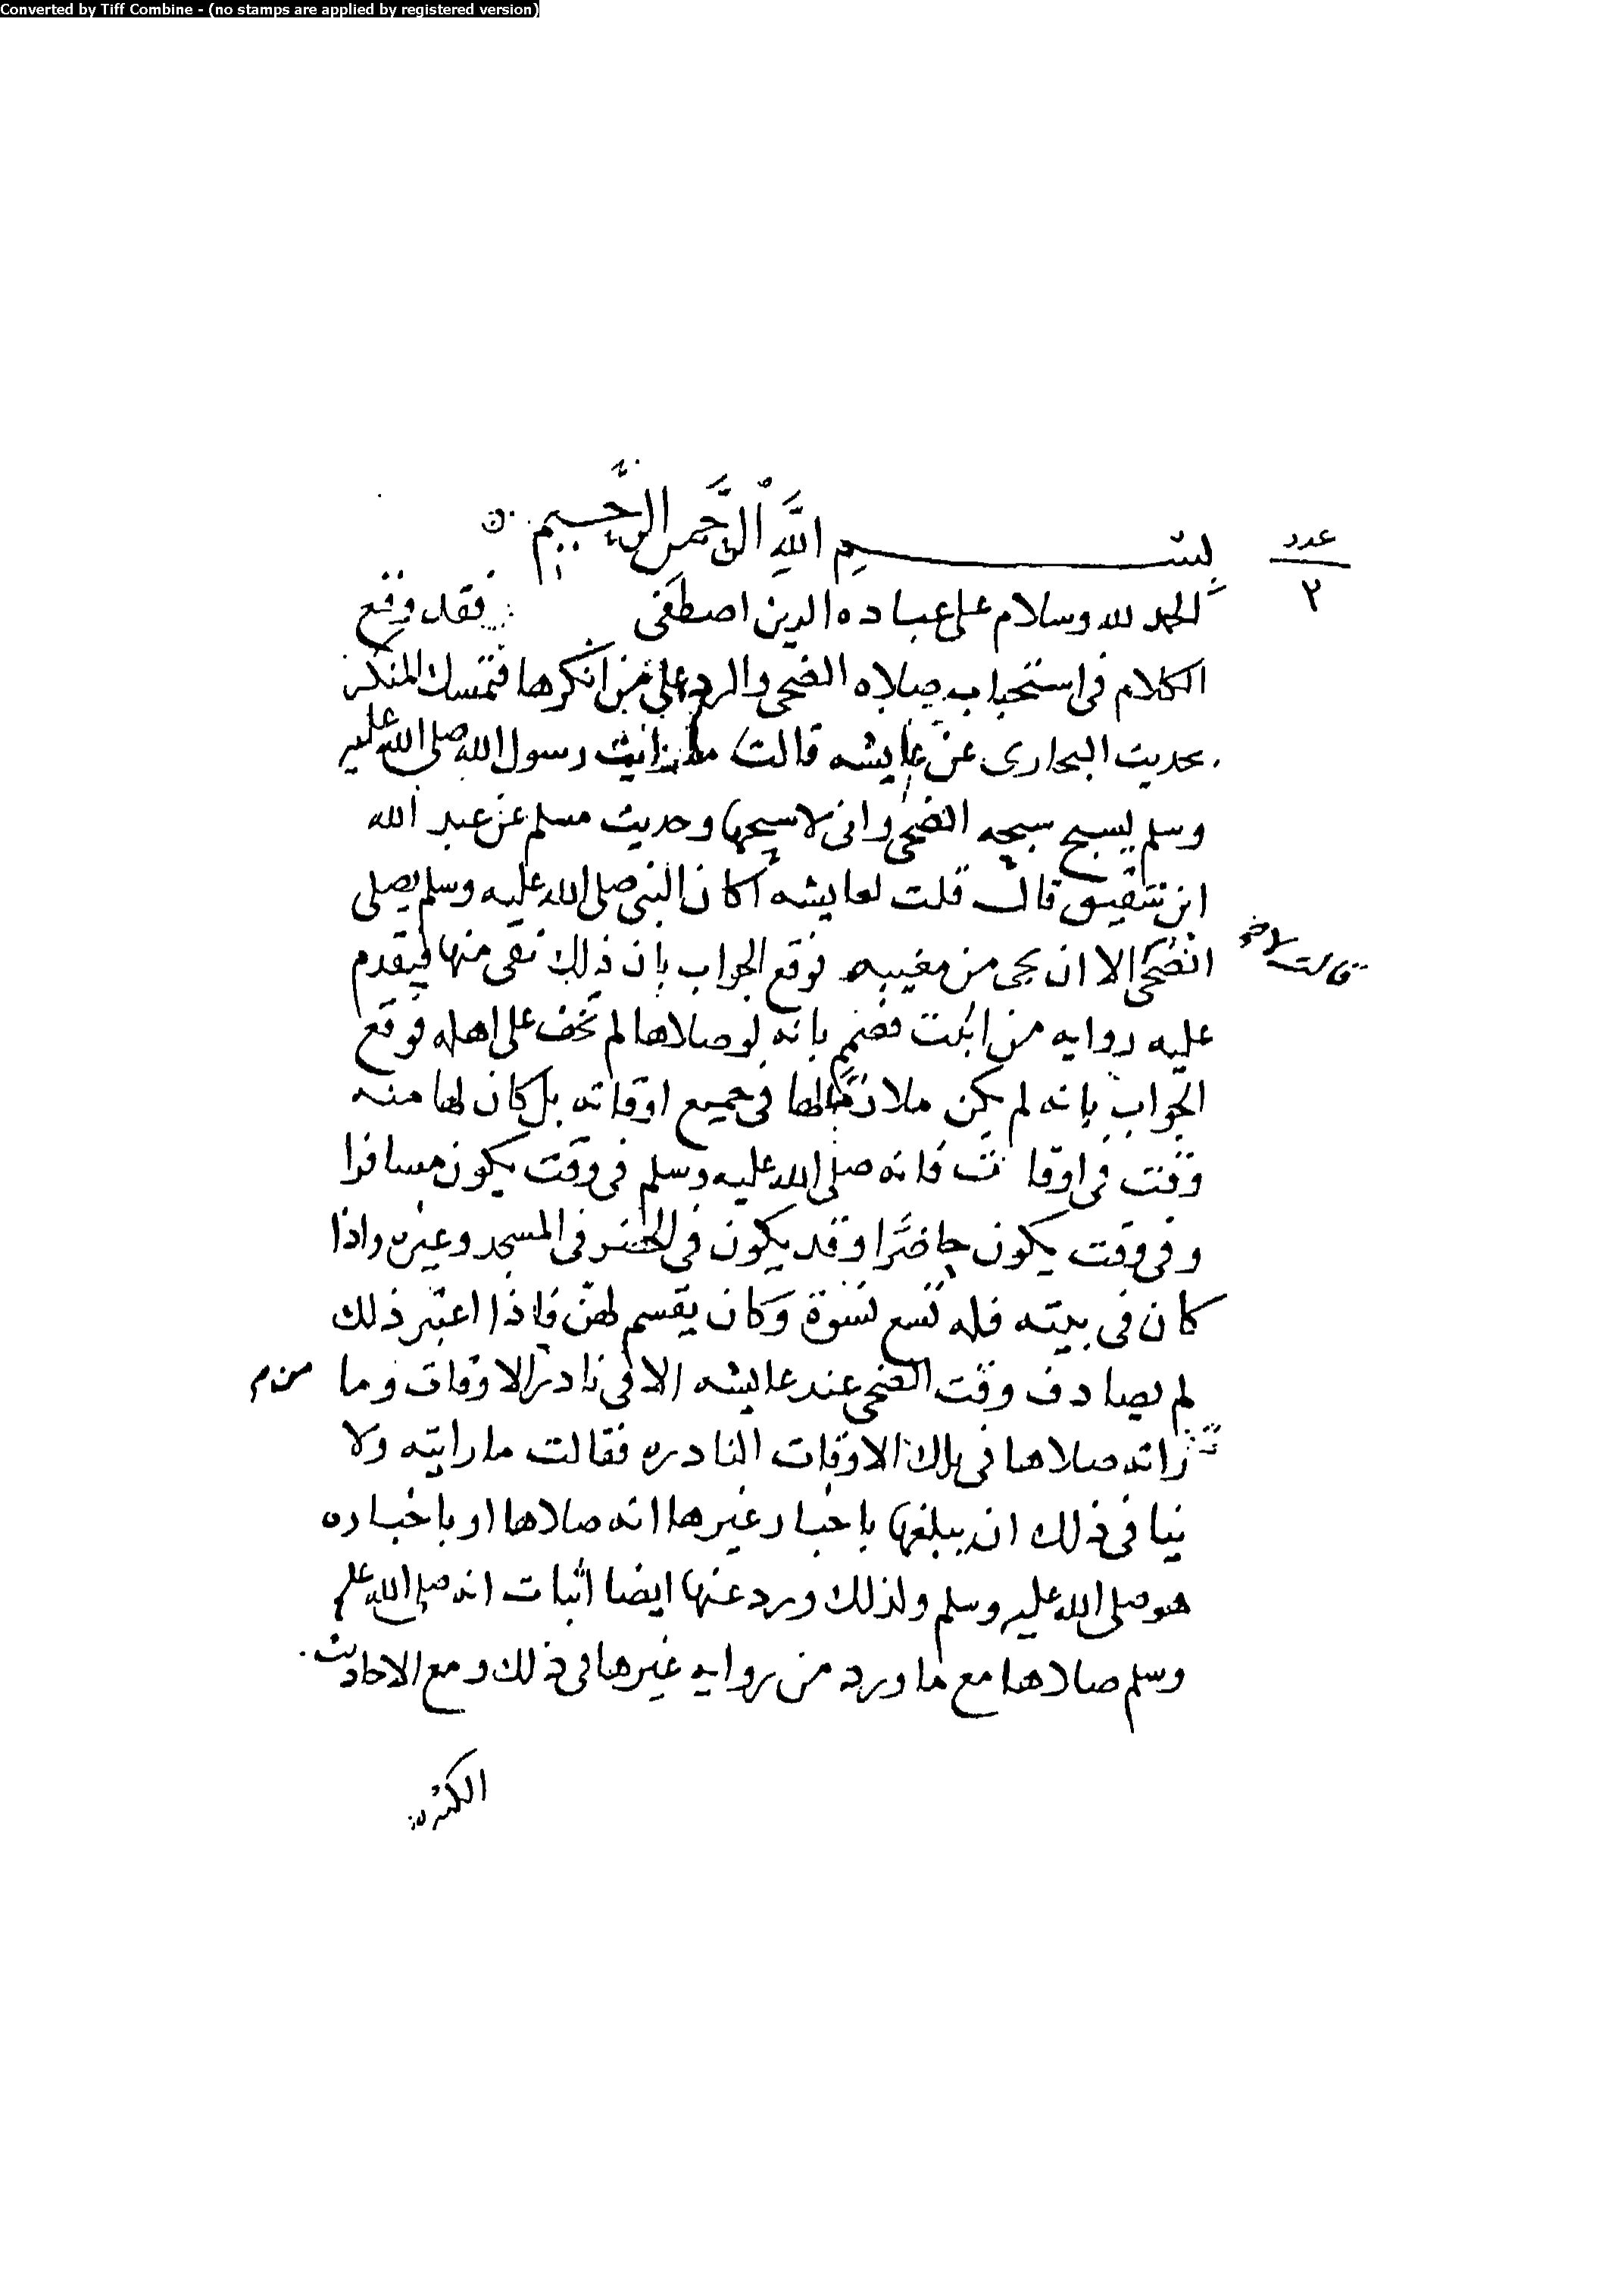 Converted by Tiff Combine - (no stamps are applied by registered version)
بسم الله الرحمن الرحيم
عدد
٢
الحمد لله وسلام على عباده الذين اصطفى فقد وقع
الكلام في استحباب صلاه الضحى والرد على من انكرها فتمسك المنكر
بحديث البخارى عن عايشه قالت ما رايت رسول الله صلى الله عليه
وسلم يسبح سبحه الضحى وانى لاسبحها وحديث مسلم عن عبد الله
ابن شقيق قال قلت لعايشه أكان النبى صلى الله عليه وسلم يصلى
قالت لا
الضحى الا ان يجى من مغيبه فوقع الجواب بان ذلك نفى منها فيقدم
عليه روايه من اثبت بانه لو صلاها لم تخف على اهله فوقع
الجواب بانه لم يكن ملازما لها في جميع اوقاته بل كان لها منه
وقت في اوقات فانه صلى الله عليه وسلم في وقت يكون مسافرا
وفي وقت يكون حاضرا وقد يكون في الحضر في المسجد وغيره واذا
كان في بيته فله تسع نسوة وكان يقسم لهن فاذا اعتبر ذلك
لم يصادف وقت الضحى عند عايشه الا في نادر الاوقات وما
راته صلاها في تلك الاوقات النادره فقالت ما رايته ولا
ينافى ذلك ان يبلغها باخبار غيرها انه صلاها او باخباره
هو صلى الله عليه وسلم ولذلك ورد عنها ايضا اثبات انه صلى الله عليه
وسلم صلاها مع ما ورد من روايه غيرها لذلك ومع الاحاديث
الكثيره